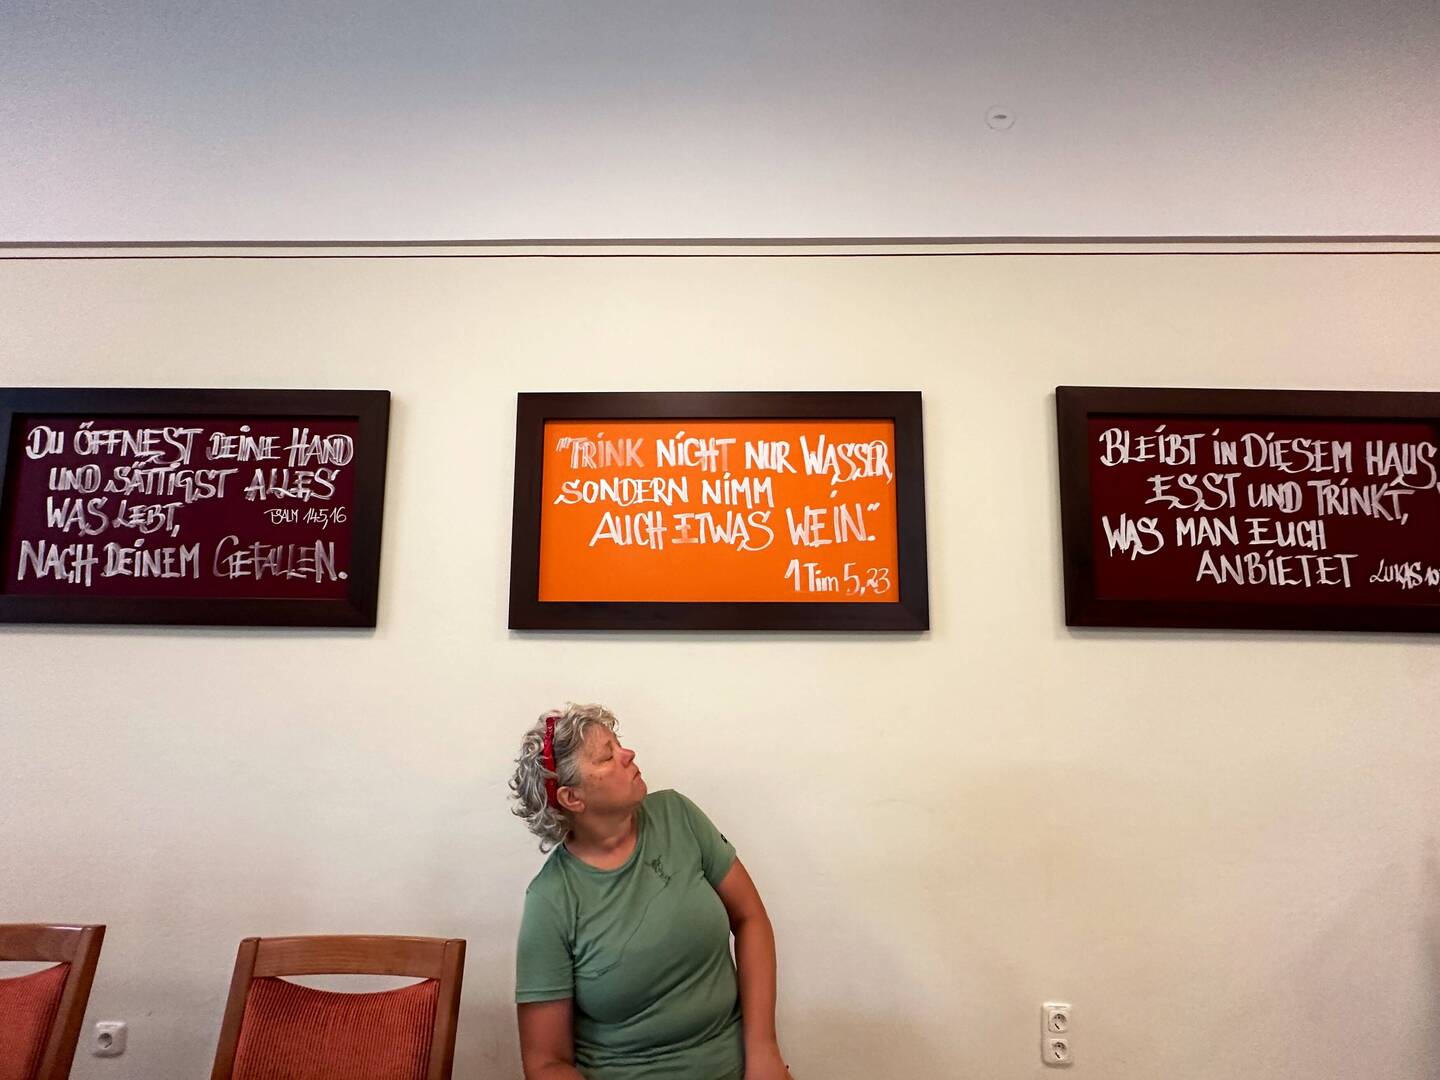 DU ÖFFNEST DEINE HAND
UND SÄTTIGST ALLES
WAS LEBT,
PSALM 145,16
NACH DEINEM GEFALLEN.
"TRINK NICHT NUR WASSER,
SONDERN NIMM
AUCH ETWAS WEIN."
1 Tim 5,23
BLEIBT IN DIESEM HAUS,
ESST UND TRINKT,
WAS MAN EUCH
ANBIETET LUKAS 10,